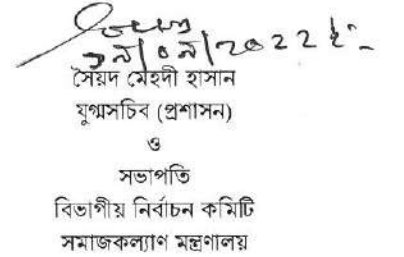 সৈয়দ মেহদী হাসান
যুগ্মসচিব (প্রশাসন)
ও
সভাপতি
বিভাগীয় নির্বাচন কমিটি
সমাজকল্যাণ মন্ত্রণালয়